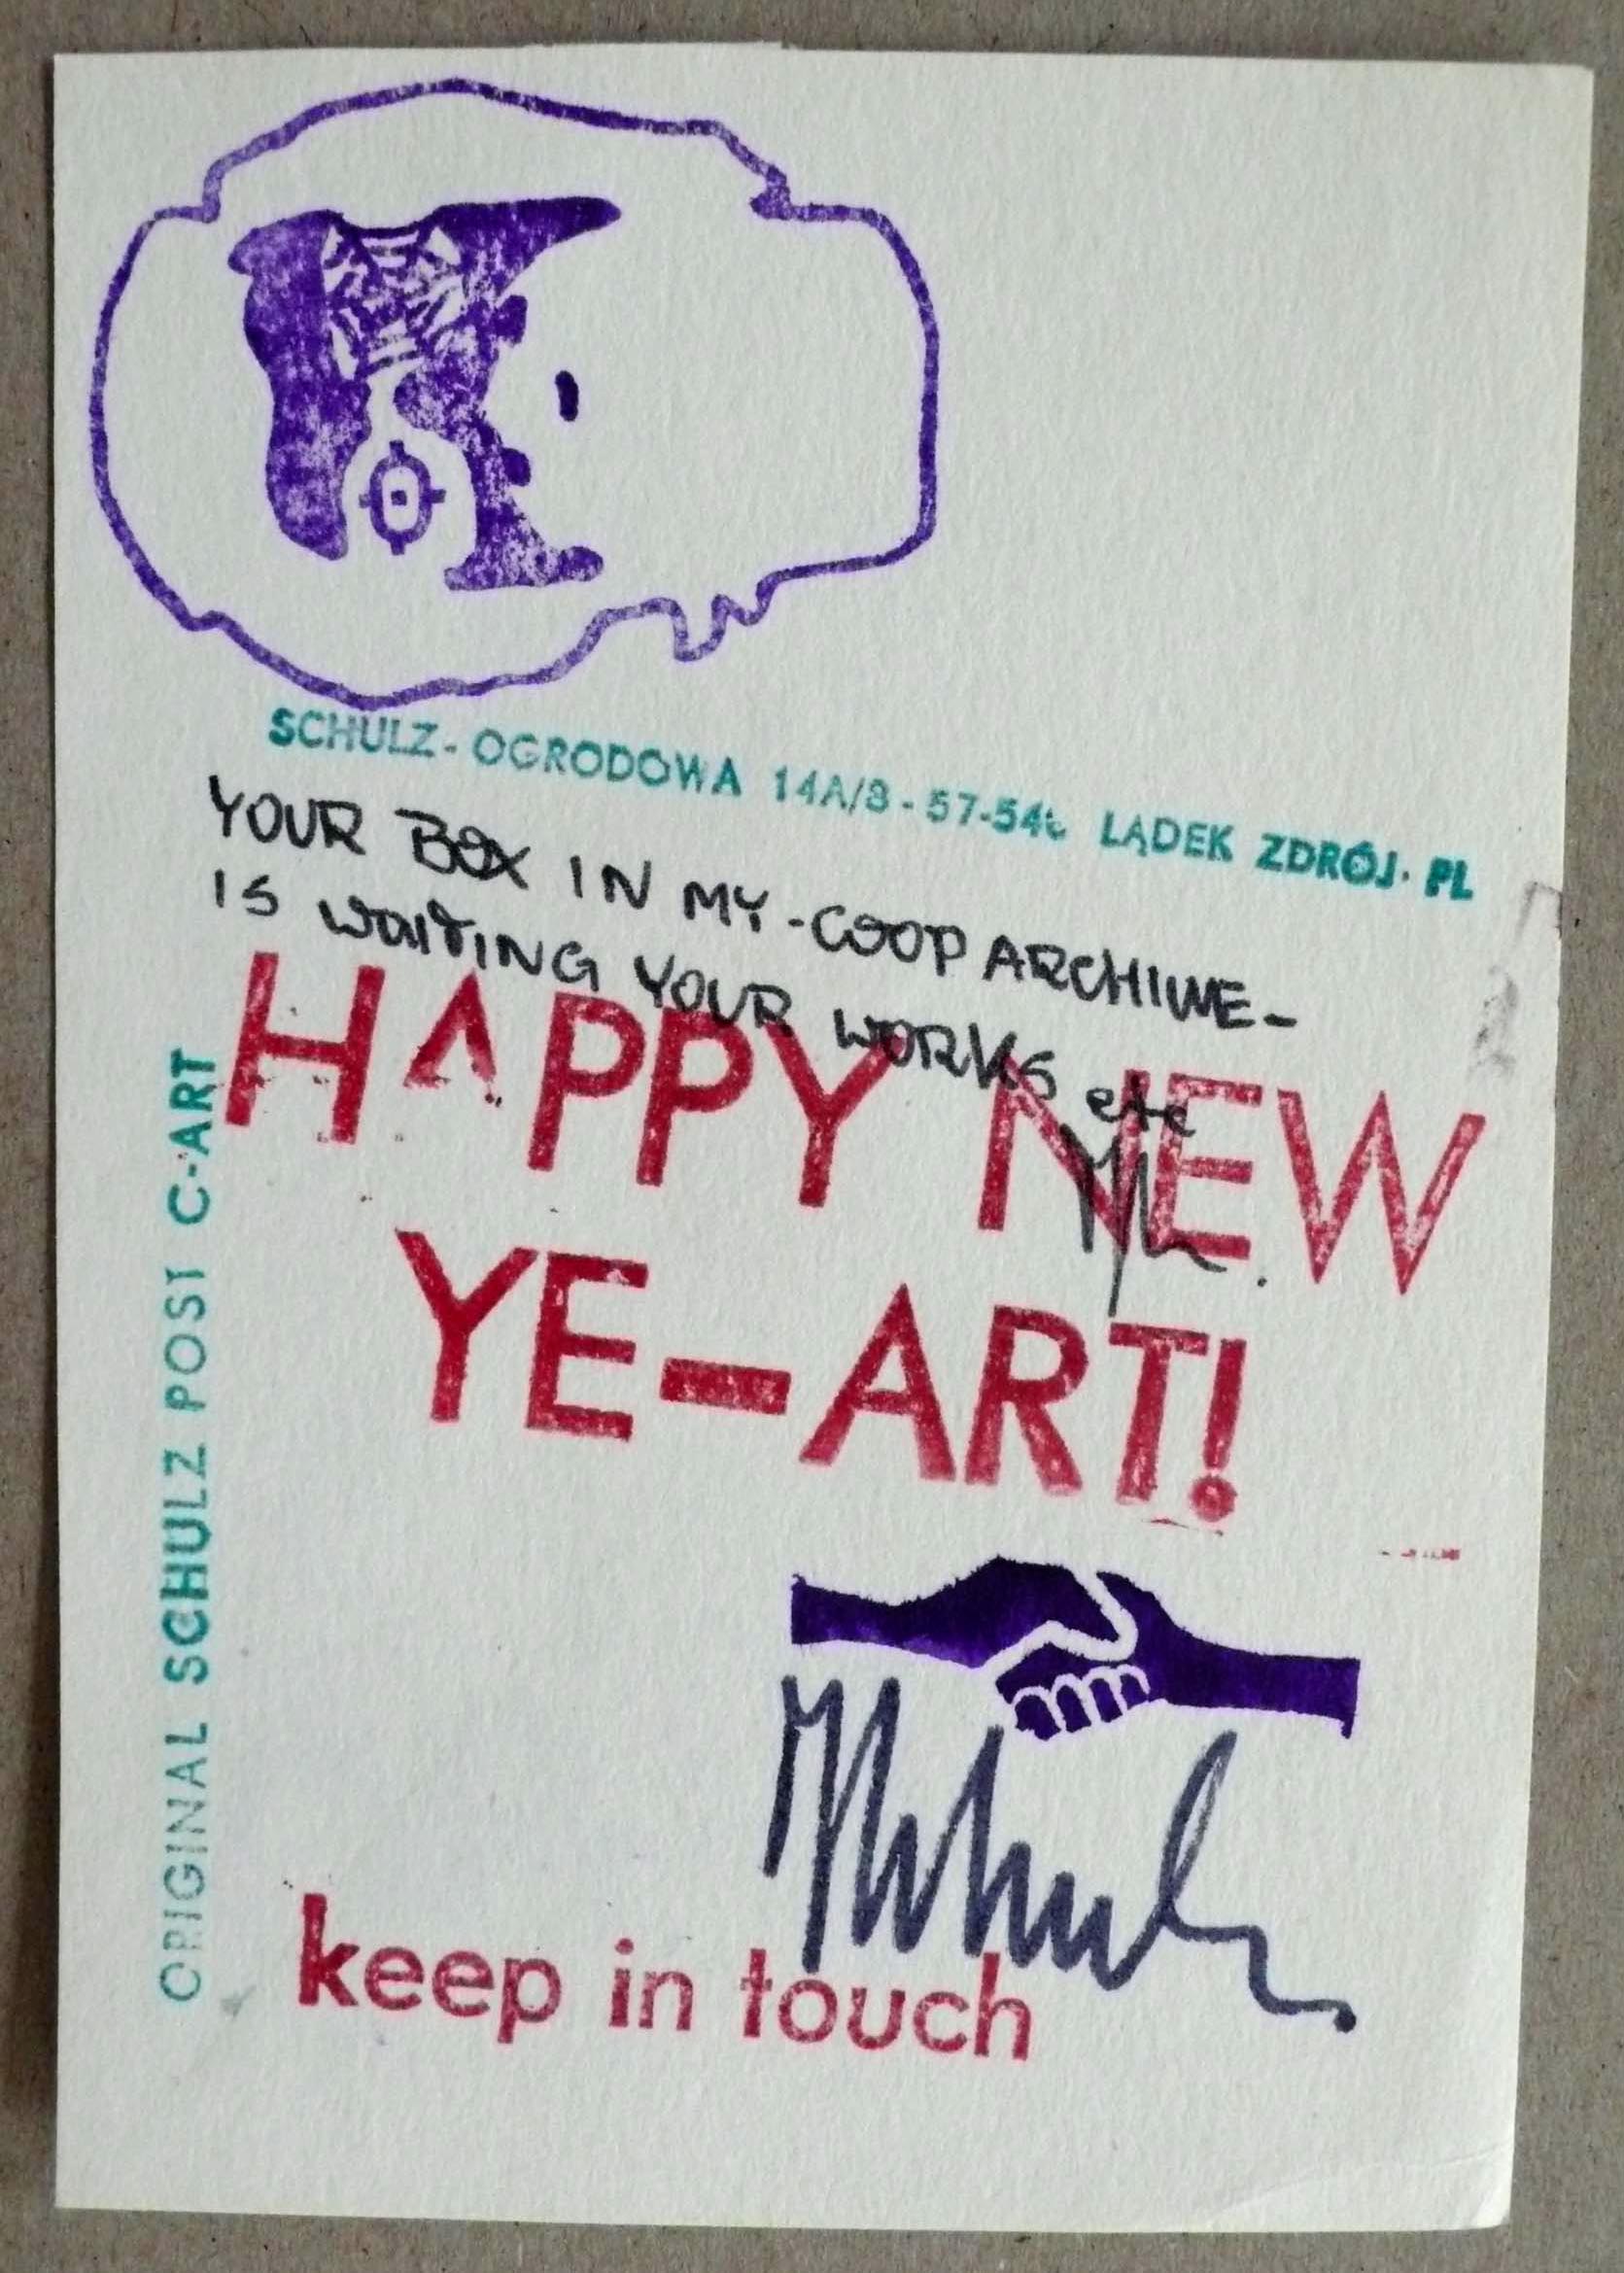 SCHULZ - OGRODOWA 14A/8 - 57-54 LĄDEK ZDRÓJ. PL
YOUR BOX IN MY - COOP ARCHIWE -
IS WAITING YOUR WORKS etc
HAPPY NEW
YE-ART!
ORIGINAL SCHULZ POST C-ART
keep in touch